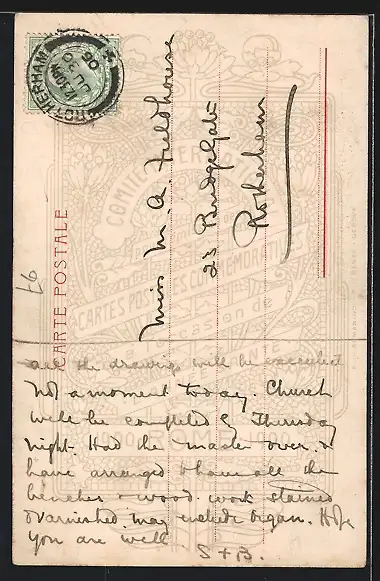 ROTHERHAM
12.30PM
JL 30
06
CARTE POSTALE
Miss M. A. Fieldhouse
23 Bridgegate
Rotherham
COMITÉ
CARTES POSTALES COMMEMORATIVES
the drawings will be executed
Not a moment today. Church
will be completed by Thursday
night. Had the master over. &
have arranged to have all the
benches & wood work stained
& varnished. may include organ. Hope
you are well.
S + B.